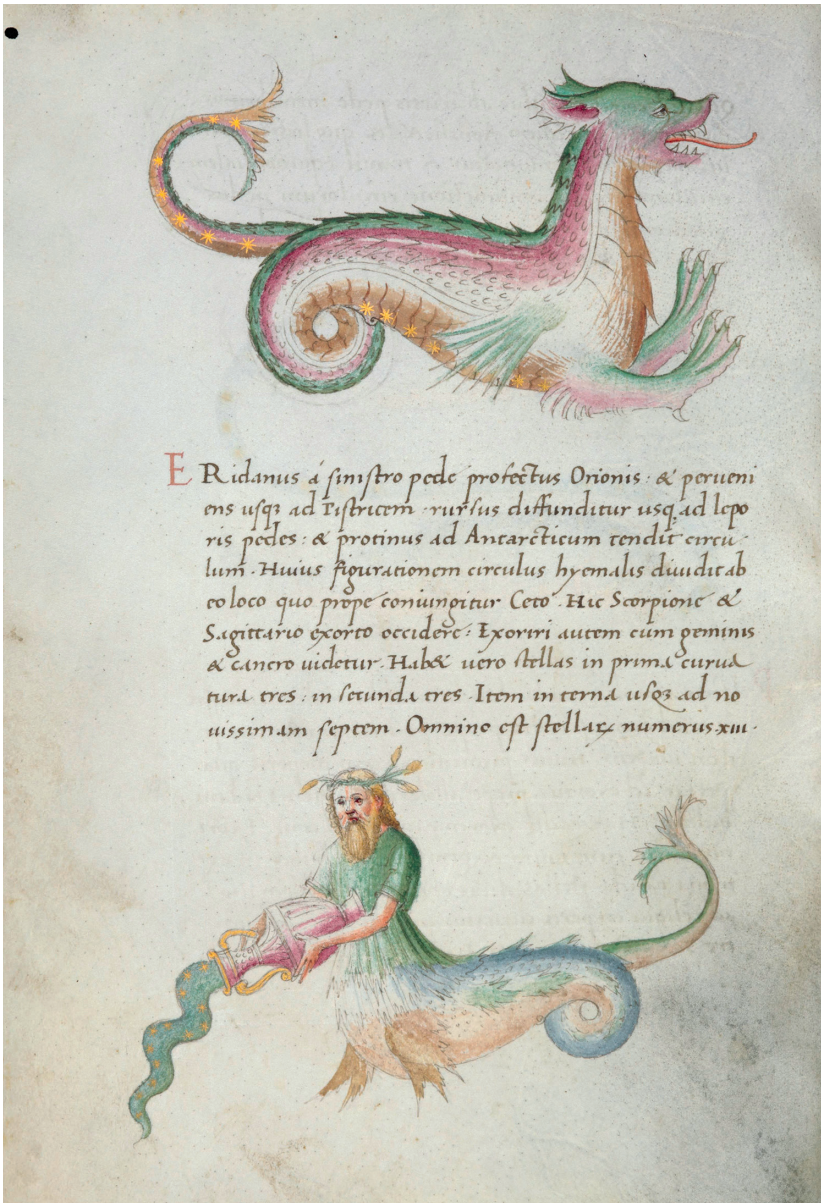 ERidanus á sinistro pede profectus Orionis · & perueni
ens usqꝫ ad Pistricem · rursus diffunditur usqꝫ ad lepo
ris pedes : & protinus ad Antarcticum tendit circu ·
lum · Huius figurationem circulus hyemalis diuidit ab
eo loco quo prope coniungitur Ceto · Hic Scorpione &
Sagittario exorto occidere : Exoriri autem cum geminis
& cancro uidetur · Hab& uero stellas in prima curua
tura tres : in secunda tres · Item in terna usqꝫ ad no
uissimam septem · Omnino est stellaꝝ numerus · xiii ·